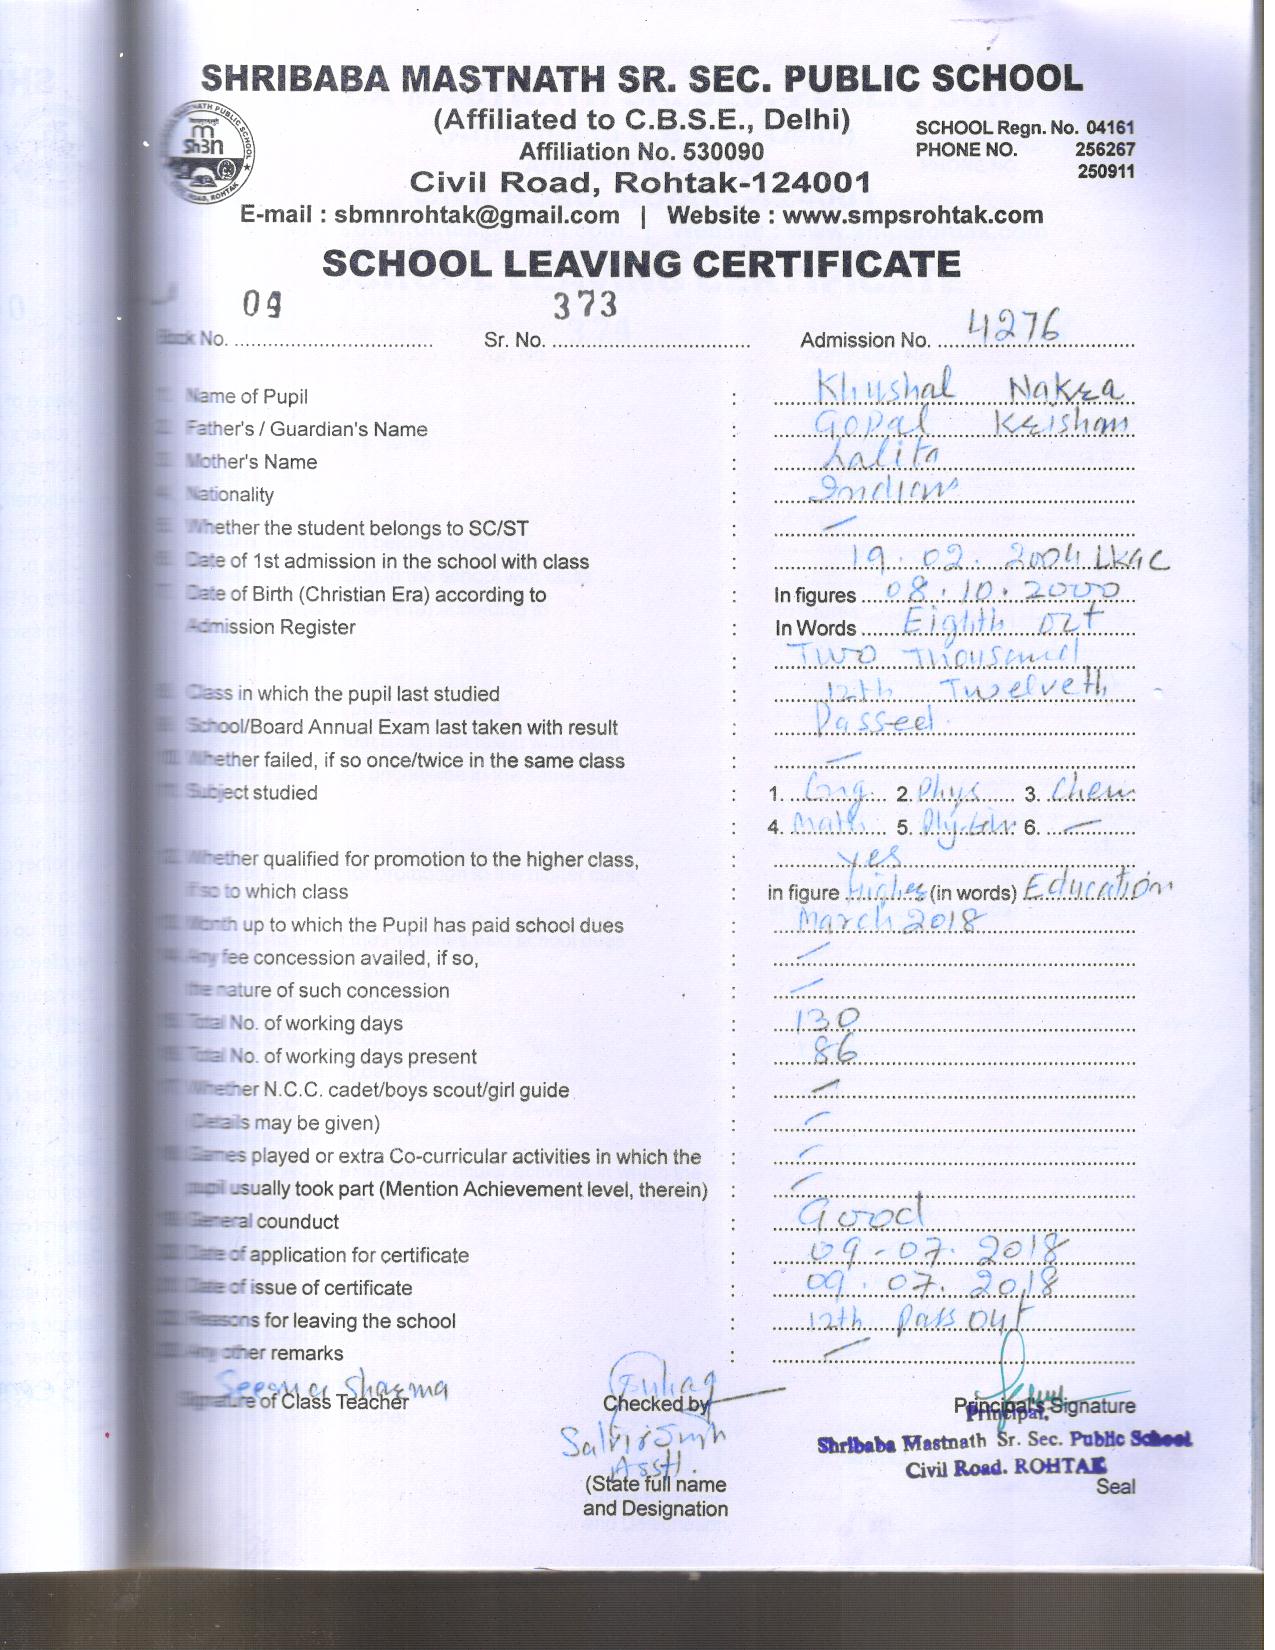 SHRIBABA MASTNATH SR. SEC. PUBLIC SCHOOL
(Affiliated to C.B.S.E., Delhi)
SCHOOL Regn. No. 04161
Affiliation No. 530090
PHONE NO. 256267
250911
Civil Road, Rohtak-124001
E-mail : sbmnrohtak@gmail.com | Website : www.smpsrohtak.com
SCHOOL LEAVING CERTIFICATE
Book No. 09 Sr. No. 373 Admission No. 4276
Name of Pupil : Khushal Nakra
Father's / Guardian's Name : Gopal Krishan
Mother's Name : Lalita
Nationality : Indian
Whether the student belongs to SC/ST : —
Date of 1st admission in the school with class : 19.02.2004 LKGC
Date of Birth (Christian Era) according to : In figures 08.10.2000
Admission Register : In Words Eighth Oct
: Two Thousand
Class in which the pupil last studied : 12th Twelveth
School/Board Annual Exam last taken with result : Passed
Whether failed, if so once/twice in the same class : —
Subject studied : 1. Eng. 2. Phys 3. Chem
: 4. Math 5. 6. —
Whether qualified for promotion to the higher class, : yes
if so to which class : in figure Higher (in words) Education
Month up to which the Pupil has paid school dues : March 2018
Any fee concession availed, if so, : —
the nature of such concession : —
Total No. of working days : 130
Total No. of working days present : 86
Whether N.C.C. cadet/boys scout/girl guide : —
(Details may be given) : —
Games played or extra Co-curricular activities in which the : —
pupil usually took part (Mention Achievement level, therein) : —
General counduct : Good
Date of application for certificate : 09-07.2018
Date of issue of certificate : 09.07.2018
Reasons for leaving the school : 12th Pass Out
Any other remarks : —
Seema Sharma
Signature of Class Teacher Checked by Principal's Signature
Principal,
Shribaba Mastnath Sr. Sec. Public School
Civil Road. ROHTAK
Seal
(State full name
and Designation